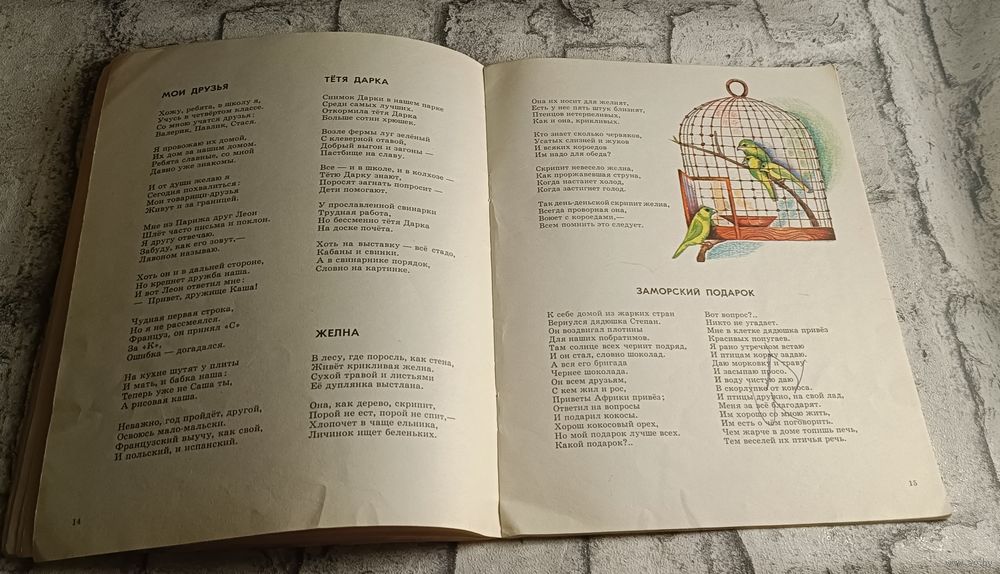 МОИ ДРУЗЬЯ
Хожу, ребята, в школу я,
Учусь в четвёртом классе.
Со мною учатся друзья:
Валерик, Павлик, Стася.
Я провожаю их домой,
Их дом за нашим домом.
Ребята славные, со мной
Давно уже знакомы.
И от души желаю я
Сегодня похвалиться:
Мои товарищи-друзья
Живут и за границей.
Мне из Парижа друг Леон
Шлёт часто письма и поклон.
Я другу отвечаю.
Забуду, как его зовут,—
Лявоном называю.
Хоть он и в дальней стороне,
Но крепнет дружба наша.
И вот Леон ответил мне:
— Привет, дружище Каша!
Чудная первая строка,
Но я не рассмеялся.
Француз, он принял «С»
За «К»,
Ошибка — догадался.
На кухне шутят у плиты
И мать, и бабка наша:
Теперь уже не Саша ты,
А рисовая каша.
Неважно, год пройдёт, другой,
Освоюсь мало-мальски.
Французский выучу, как свой,
И польский, и испанский.
14
ТЁТЯ ДАРКА
Снимок Дарки в нашем парке
Среди самых лучших.
Откормила тётя Дарка
Больше сотни хрюшек.
Возле фермы луг зелёный
С клеверной отавой,
Добрый выгон и загоны —
Пастбище на славу.
Все — и в школе, и в колхозе —
Тётю Дарку знают,
Поросят загнать попросит —
Дети помогают.
У прославленной свинарки
Трудная работа,
Но бессменно тётя Дарка
На доске почёта.
Хоть на выставку — всё стадо,
Кабаны и свинки.
А в свинарнике порядок,
Словно на картинке.
ЖЕЛНА
В лесу, где поросль, как стена,
Живёт крикливая желна.
Сухой травой и листьями
Её дуплянка выстлана.
Она, как дерево, скрипит,
Порой не ест, порой не спит,—
Хлопочет в чаще ельника,
Личинок ищет беленьких.
Она их носит для желнят,
Есть у нее пять штук близнят,
Птенцов нетерпеливых,
Как и она, крикливых.
Кто знает сколько червяков,
Усатых слизней и жуков
И всяких короедов
Им надо для обеда?
Скрипит невесело желна,
Как проржавевшая струна,
Когда настанет холод,
Когда застигнет голод.
Так день-деньской скрипит желна,
Всегда проворная она,
Воюет с короедами,—
Всем помнить это следует.
ЗАМОРСКИЙ ПОДАРОК
К себе домой из жарких стран
Вернулся дядюшка Степан.
Он воздвигал плотины
Для наших побратимов.
Там солнце всех чернит подряд,
И он стал, словно шоколад.
А вся его бригада
Чернее шоколада.
Он всем друзьям,
С кем жил и рос,
Приветы Африки привёз;
Ответил на вопросы
И подарил кокосы.
Хорош кокосовый орех,
Но мой подарок лучше всех.
Какой подарок?..
Вот вопрос?..
Никто не угадает.
Мне в клетке дядюшка привёз
Красивых попугаев.
Я рано утречком встаю
И птицам корму задаю.
Даю морковку и траву
И засыпаю просо.
И воду чистую даю
В скорлупке от кокоса.
И птицы дружно, на свой лад,
Меня за всё благодарят.
Им хорошо со мною жить,
Им есть о чём поговорить.
Чем жарче в доме топишь печь,
Тем веселей их птичья речь.
15